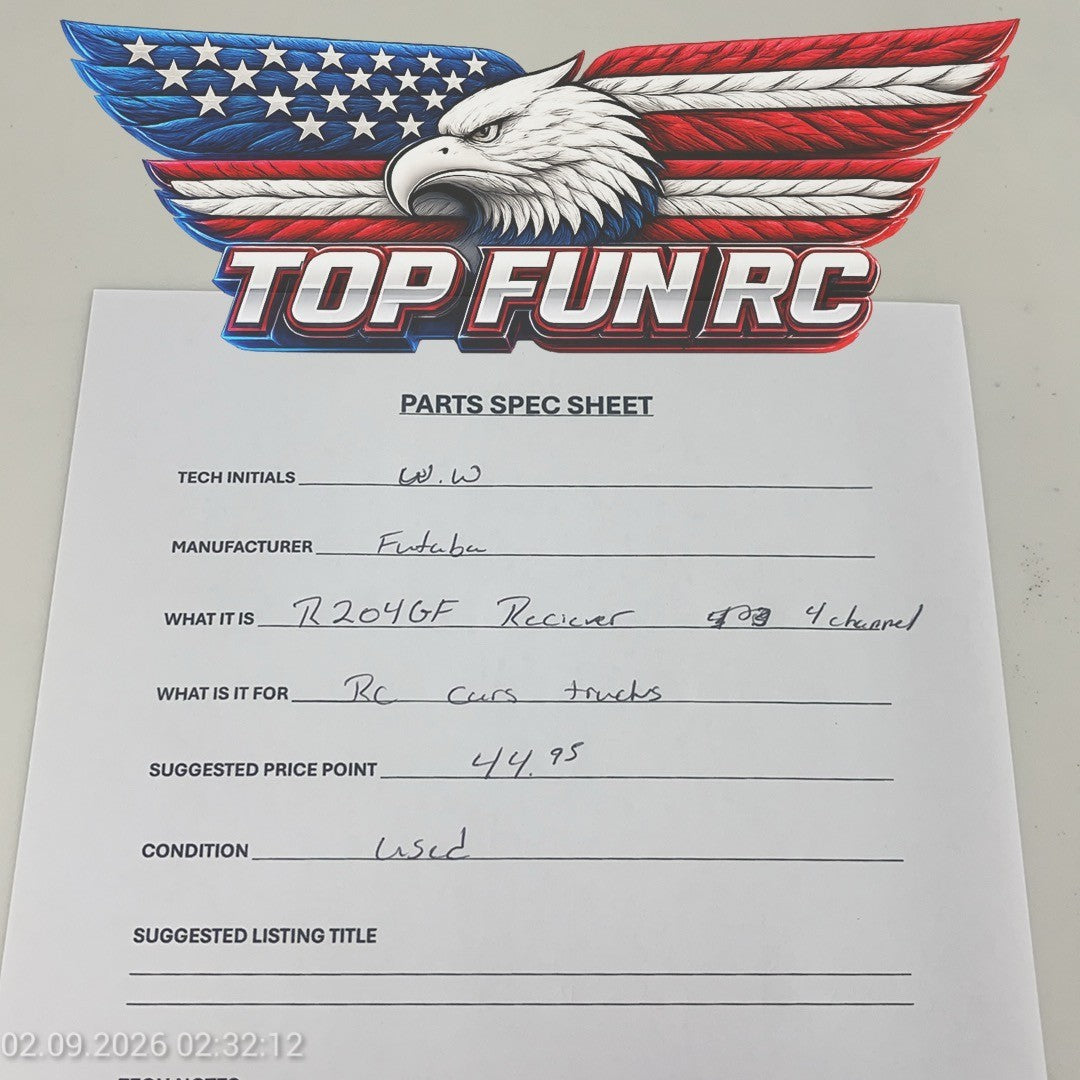 TOP FUN RC
PARTS SPEC SHEET
TECH INITIALS W.W
MANUFACTURER Futaba
WHAT IT IS R204GF Reciever 4 channel
WHAT IS IT FOR Rc cars trucks
SUGGESTED PRICE POINT 44.95
CONDITION used
SUGGESTED LISTING TITLE
02.09.2026 02:32:12
TECH NOTES